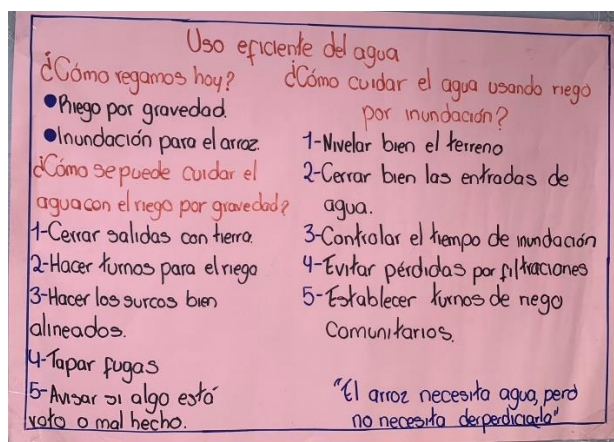 Uso eficiente del agua
¿Cómo regamos hoy?
●Riego por gravedad.
●Inundación para el arroz.
¿Cómo se puede cuidar el
agua con el riego por gravedad?
1-Cerrar salidas con tierra.
2-Hacer turnos para el riego
3-Hacer los surcos bien
alineados.
4-Tapar fugas
5-Avisar si algo está
roto o mal hecho.
¿Cómo cuidar el agua usando riego
por inundación?
1-Nivelar bien el terreno
2-Cerrar bien las entradas de
agua.
3-Controlar el tiempo de inundación
4-Evitar pérdidas por filtraciones
5-Establecer turnos de riego
Comunitarios.
"El arroz necesita agua, pero
no necesita derperdiciarla"